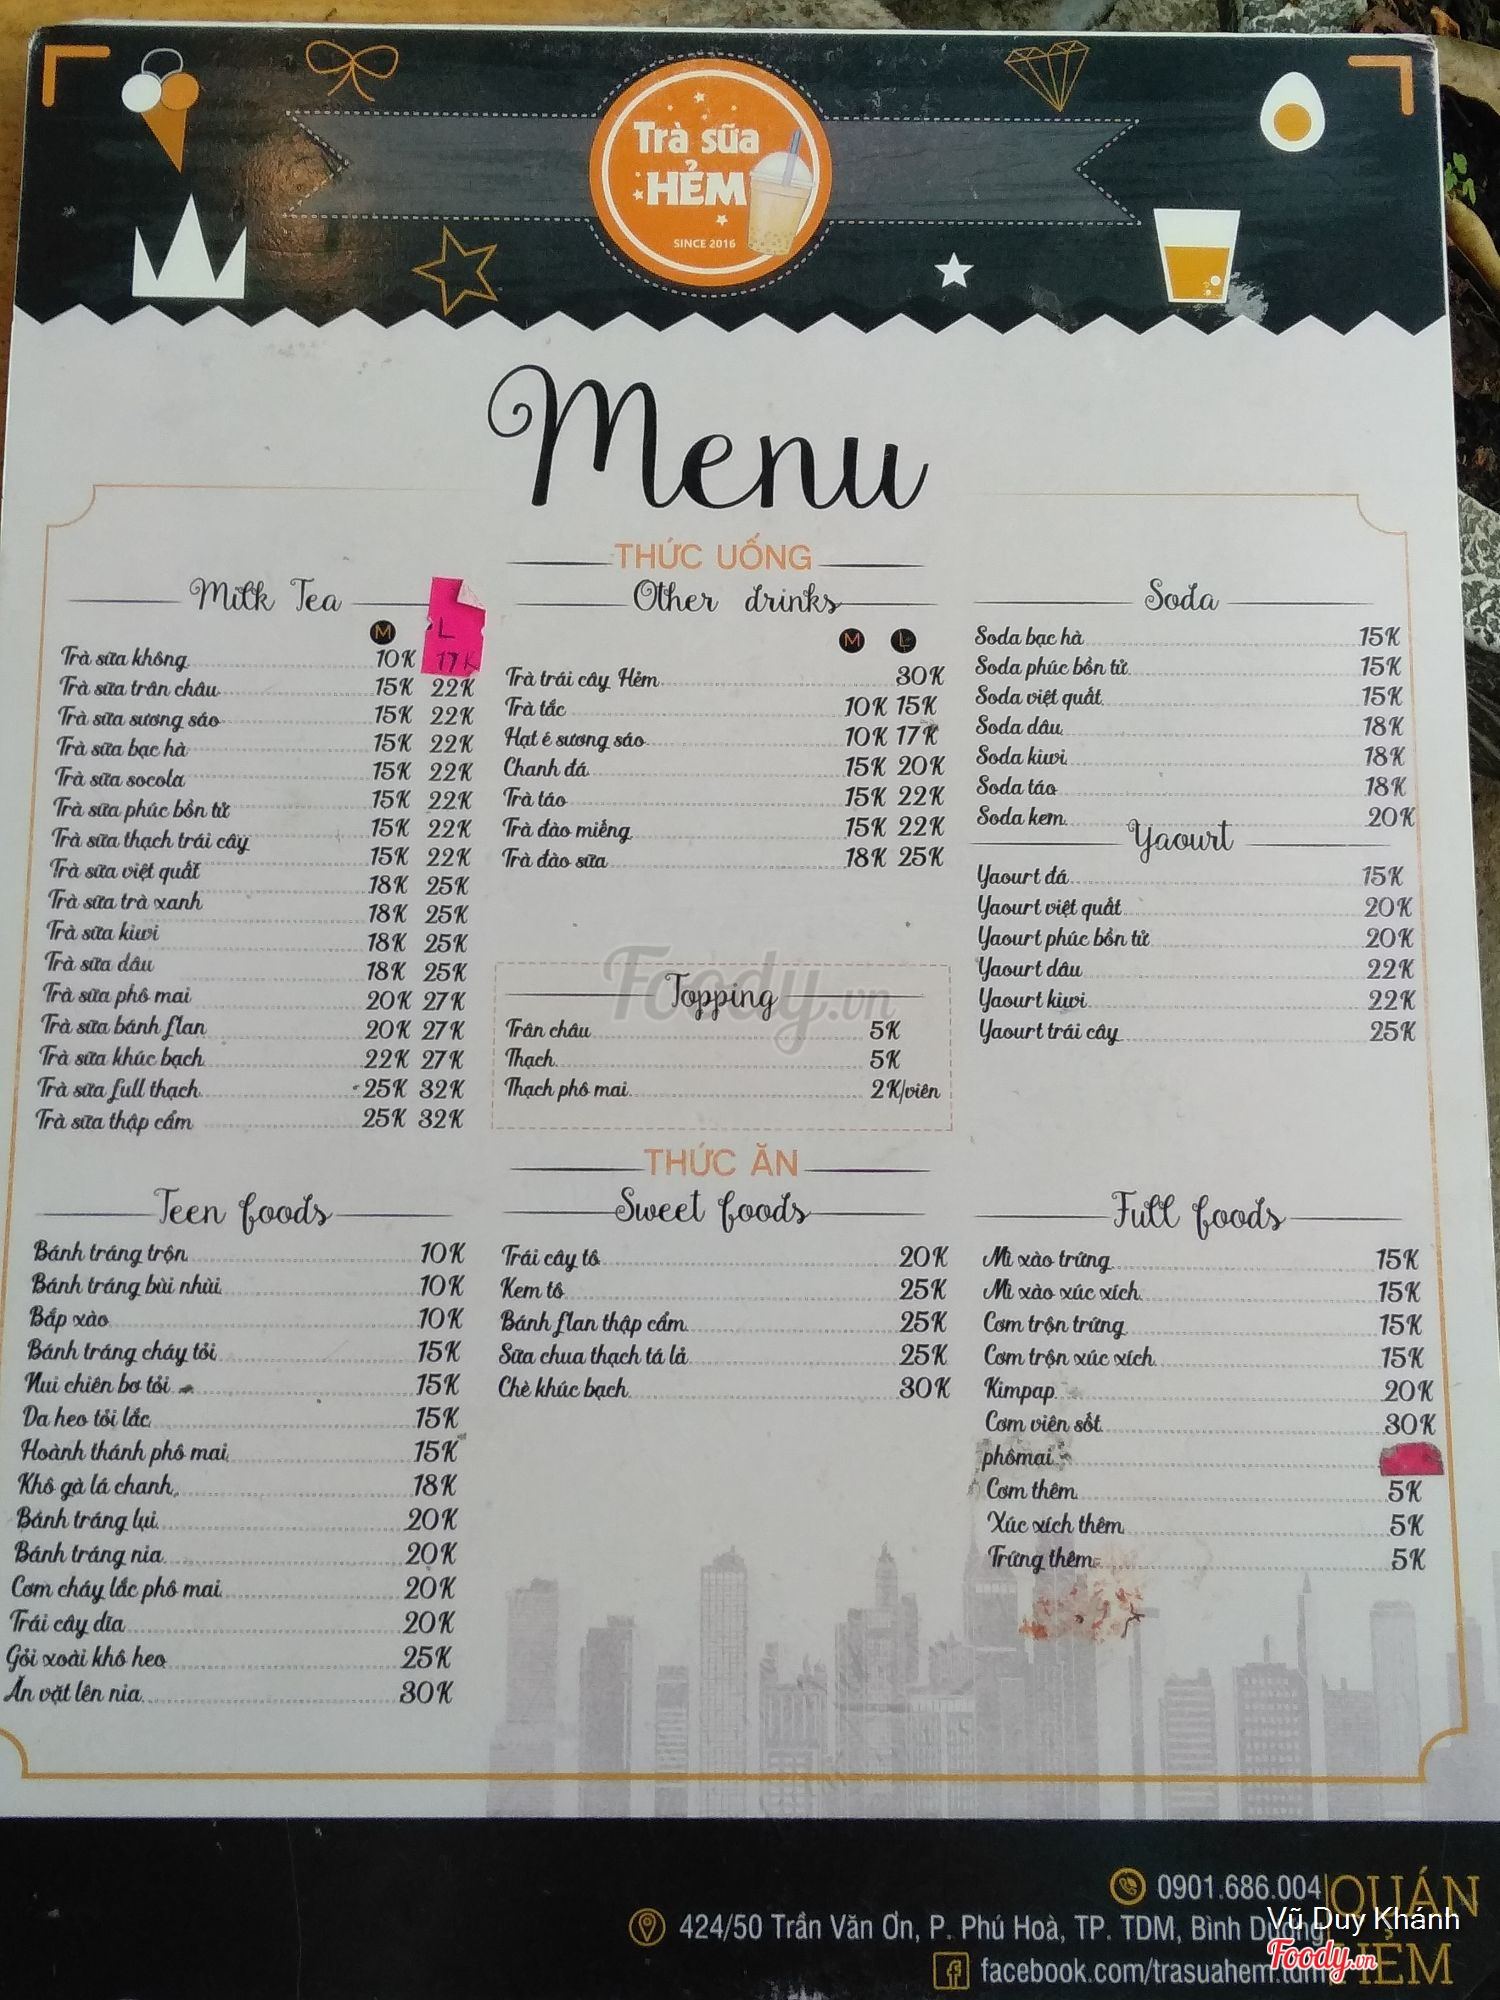 Trà sữa
HẺM
SINCE 2016
Menu
THỨC UỐNG
Milk Tea
M L
Trà sữa không 10K 17K
Trà sữa trân châu 15K 22K
Trà sữa sương sáo 15K 22K
Trà sữa bạc hà 15K 22K
Trà sữa socola 15K 22K
Trà sữa phúc bồn tử 15K 22K
Trà sữa thạch trái cây 15K 22K
Trà sữa việt quất 15K 22K
Trà sữa trà xanh 18K 25K
Trà sữa kiwi 18K 25K
Trà sữa dâu 18K 25K
Trà sữa phô mai 18K 25K
Trà sữa bánh flan 20K 27K
Trà sữa khúc bạch 20K 27K
Trà sữa full thạch 22K 27K
Trà sữa thập cẩm 25K 32K
25K 32K
Other drinks
M L
Trà trái cây Hẻm 30K
Trà tắc 10K 15K
Hạt é sương sáo 10K 17K
Chanh đá 15K 20K
Trà táo 15K 22K
Trà đào miếng 15K 22K
Trà đào sữa 18K 25K
Topping
Trân châu 5K
Thạch 5K
Thạch phô mai 2K/viên
Foody.vn
Soda
Soda bạc hà 15K
Soda phúc bồn tử 15K
Soda việt quất 15K
Soda dâu 18K
Soda kiwi 18K
Soda táo 18K
Soda kem 20K
Yaourt
Yaourt đá 15K
Yaourt việt quất 20K
Yaourt phúc bồn tử 20K
Yaourt dâu 22K
Yaourt kiwi 22K
Yaourt trái cây 25K
THỨC ĂN
Teen foods
Bánh tráng trộn 10K
Bánh tráng bùi nhùi 10K
Bắp xào 10K
Bánh tráng cháy tỏi 15K
Nui chiên bơ tỏi 15K
Da heo tỏi lắc 15K
Hoành thánh phô mai 15K
Khô gà lá chanh 18K
Bánh tráng lụi 20K
Bánh tráng nia 20K
Cơm cháy lắc phô mai 20K
Trái cây dĩa 20K
Gỏi xoài khô heo 25K
Ăn vặt lên nia 30K
Sweet foods
Trái cây tô 20K
Kem tô 25K
Bánh flan thập cẩm 25K
Sữa chua thạch tá lả 25K
Chè khúc bạch 30K
Full foods
Mì xào trứng 15K
Mì xào xúc xích 15K
Cơm trộn trứng 15K
Cơm trộn xúc xích 15K
Kimpap 20K
Cơm viên sốt 30K
phômai
Cơm thêm 5K
Xúc xích thêm 5K
Trứng thêm 5K
0901.686.004
424/50 Trần Văn Ơn, P. Phú Hoà, TP. TDM, Bình Dương
facebook.com/trasuahem.tdm
QUÁN
HẺM
Vũ Duy Khánh
Foody.vn